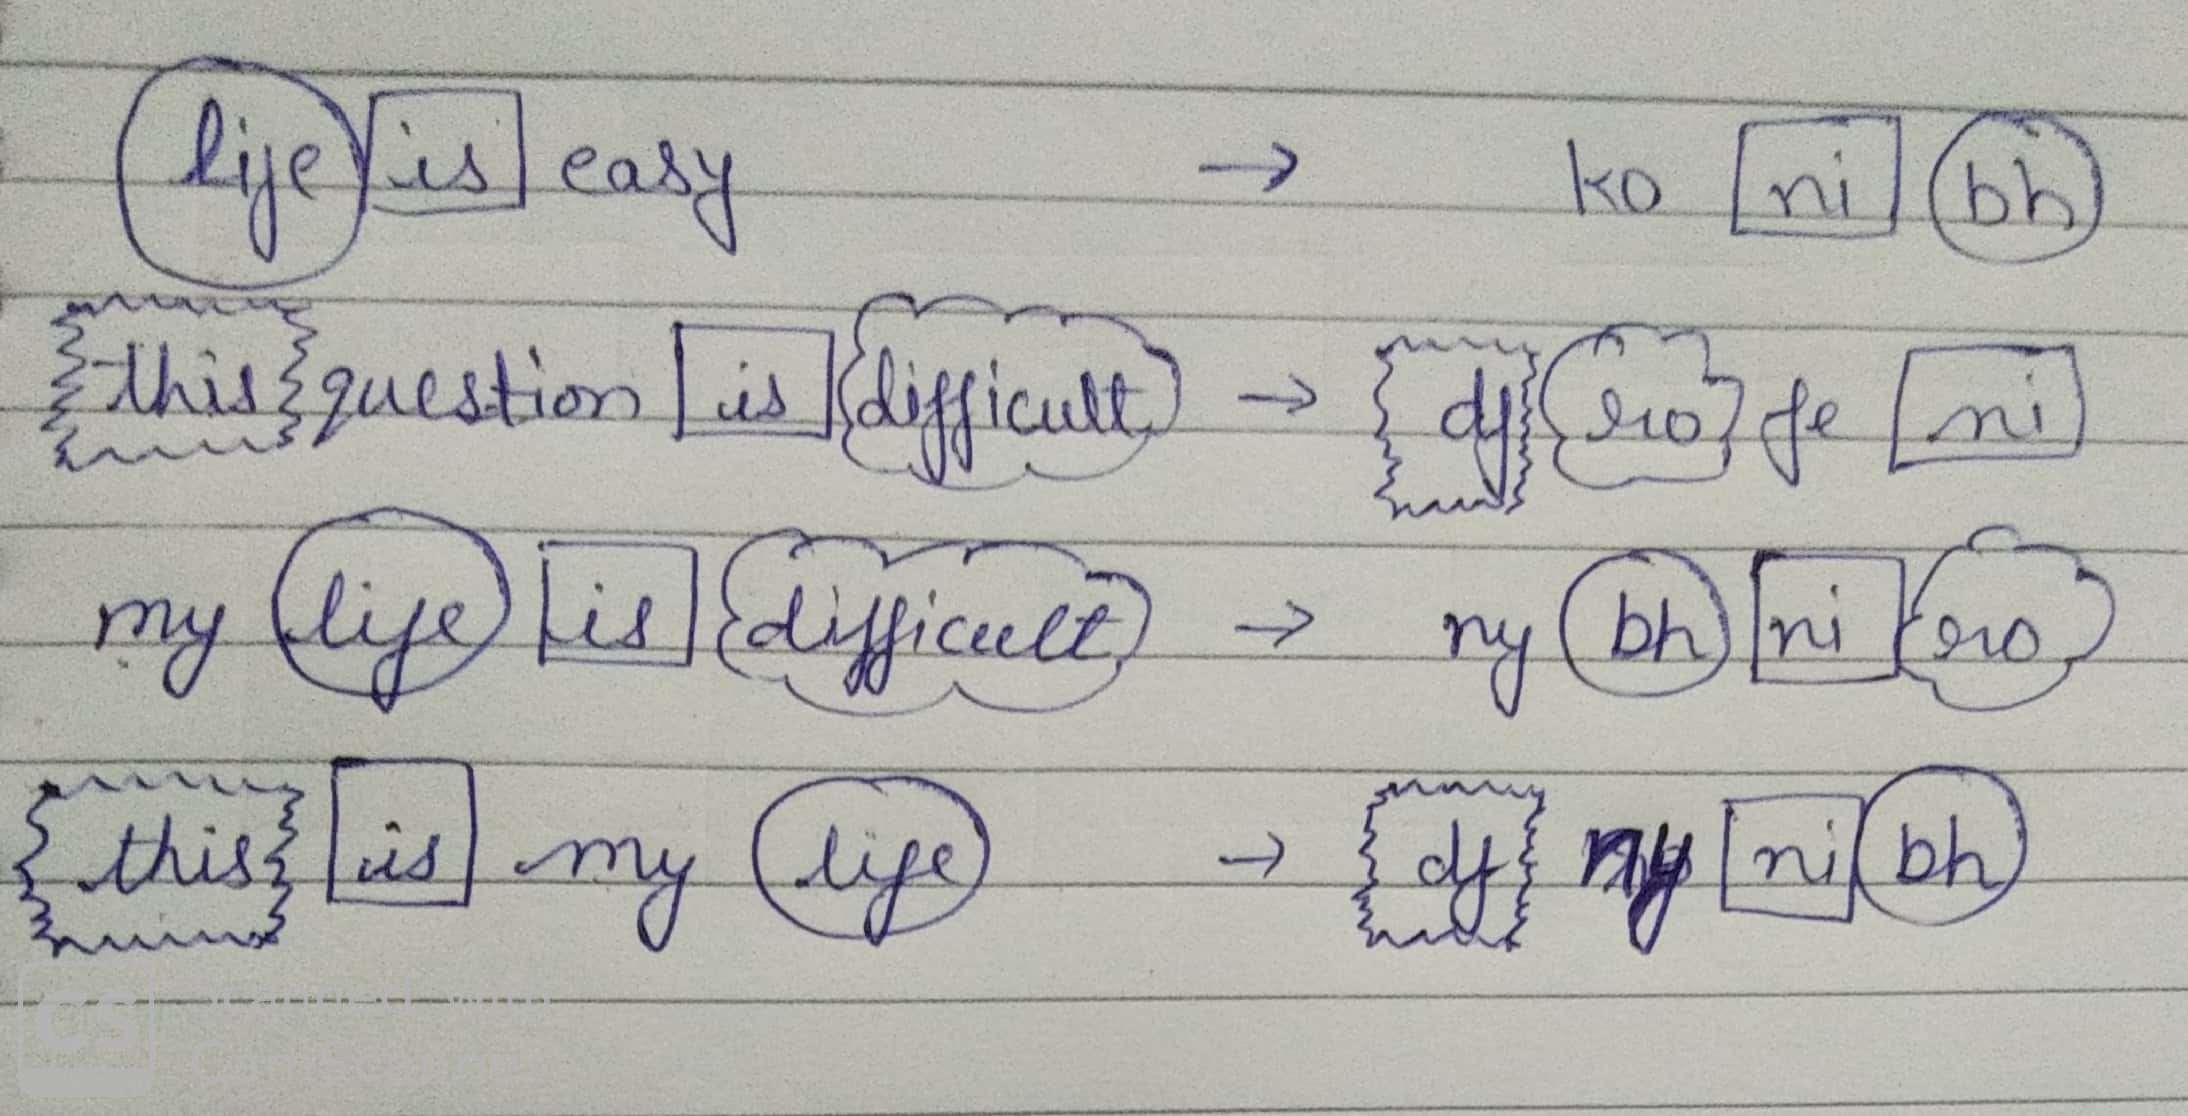 life is easy → ko ni bh
this question is difficult → dj ro fe ni
my life is difficult → ny bh ni ro
this is my life → dj ny ni bh
CS